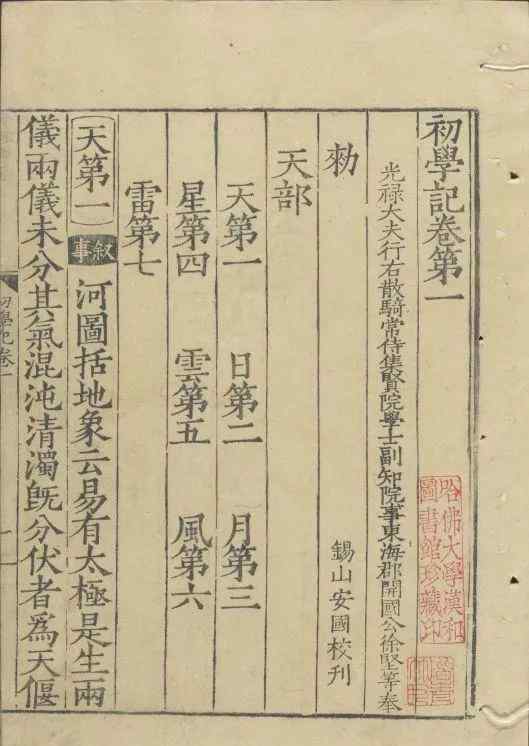 初學記卷第一
光禄大夫行右散騎常侍集賢院學士副知院事東海郡開國公徐堅等奉
勑
錫山安國校刊
天部
天第一 日第二 月第三
星第四 雲第五 風第六
雷第七
天第一 叙事 河圖括地象云易有太極是生兩
儀兩儀未分其氣混沌清濁旣分伏者爲天偃
初學記卷一
哈佛大學漢和圖書館珍藏印